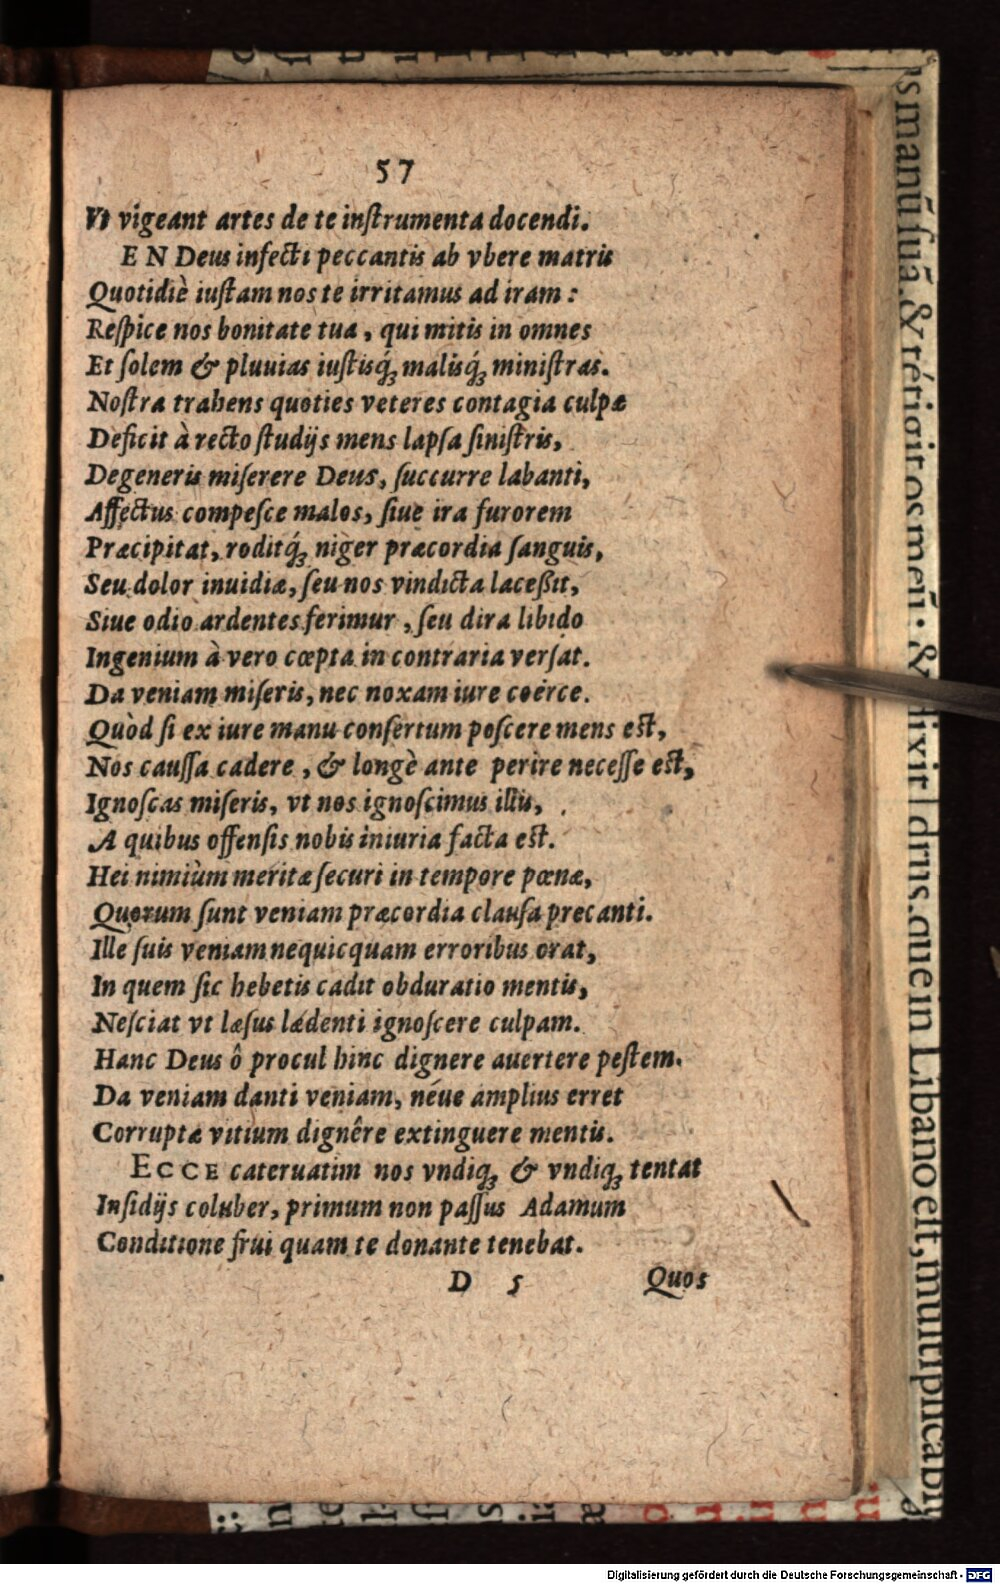 57
Vt vigeant artes de te inſtrumenta docendi.
EN Deus infecti peccantis ab vbere matris
Quotidiè iuſtam nos te irritamus ad iram:
Reſpice nos bonitate tua, qui mitis in omnes
Et ſolem & pluuias iuſtisq́; malisq́; miniſtras.
Noſtra trahens quoties veteres contagia culpæ
Deficit à recto ſtudijs mens lapſa ſiniſtris,
Degeneris miſerere Deus, ſuccurre labanti,
Affectus compeſce malos, ſiue ira furorem
Præcipitat, roditq́; niger præcordia ſanguis,
Seu dolor inuidiæ, ſeu nos vindicta laceßit,
Siue odio ardentes ferimur, ſeu dira libido
Ingenium à vero cœpta in contraria verſat.
Da veniam miſeris, nec noxam iure coërce.
Quòd ſi ex iure manu conſertum poſcere mens eſt,
Nos cauſſa cadere, & longè ante perire neceſſe eſt,
Ignoſcas miſeris, vt nos ignoſcimus illis,
A quibus offenſis nobis iniuria facta eſt.
Hei nimiùm meritæ ſecuri in tempore pœnæ,
Quorum ſunt veniam præcordia clauſa precanti.
Ille ſuis veniam nequicquam erroribus orat,
In quem ſic hebetis cadit obduratio mentis,
Neſciat vt læſus lædenti ignoſcere culpam.
Hanc Deus ô procul hinc dignere auertere peſtem.
Da veniam danti veniam, néue amplius erret
Corruptæ vitium dignêre extinguere mentis.
ECCE cateruatim nos vndiq; & vndiq; tentat
Inſidijs coluber, primum non paſſus Adamum
Conditione frui quam te donante tenebat.
D 5 Quos
s manū ſuā. & tétigit os meū. & dixit dn̄s. que in Libano eſt, multiplicab
Digitalisierung gefördert durch die Deutsche Forschungsgemeinschaft - DFG